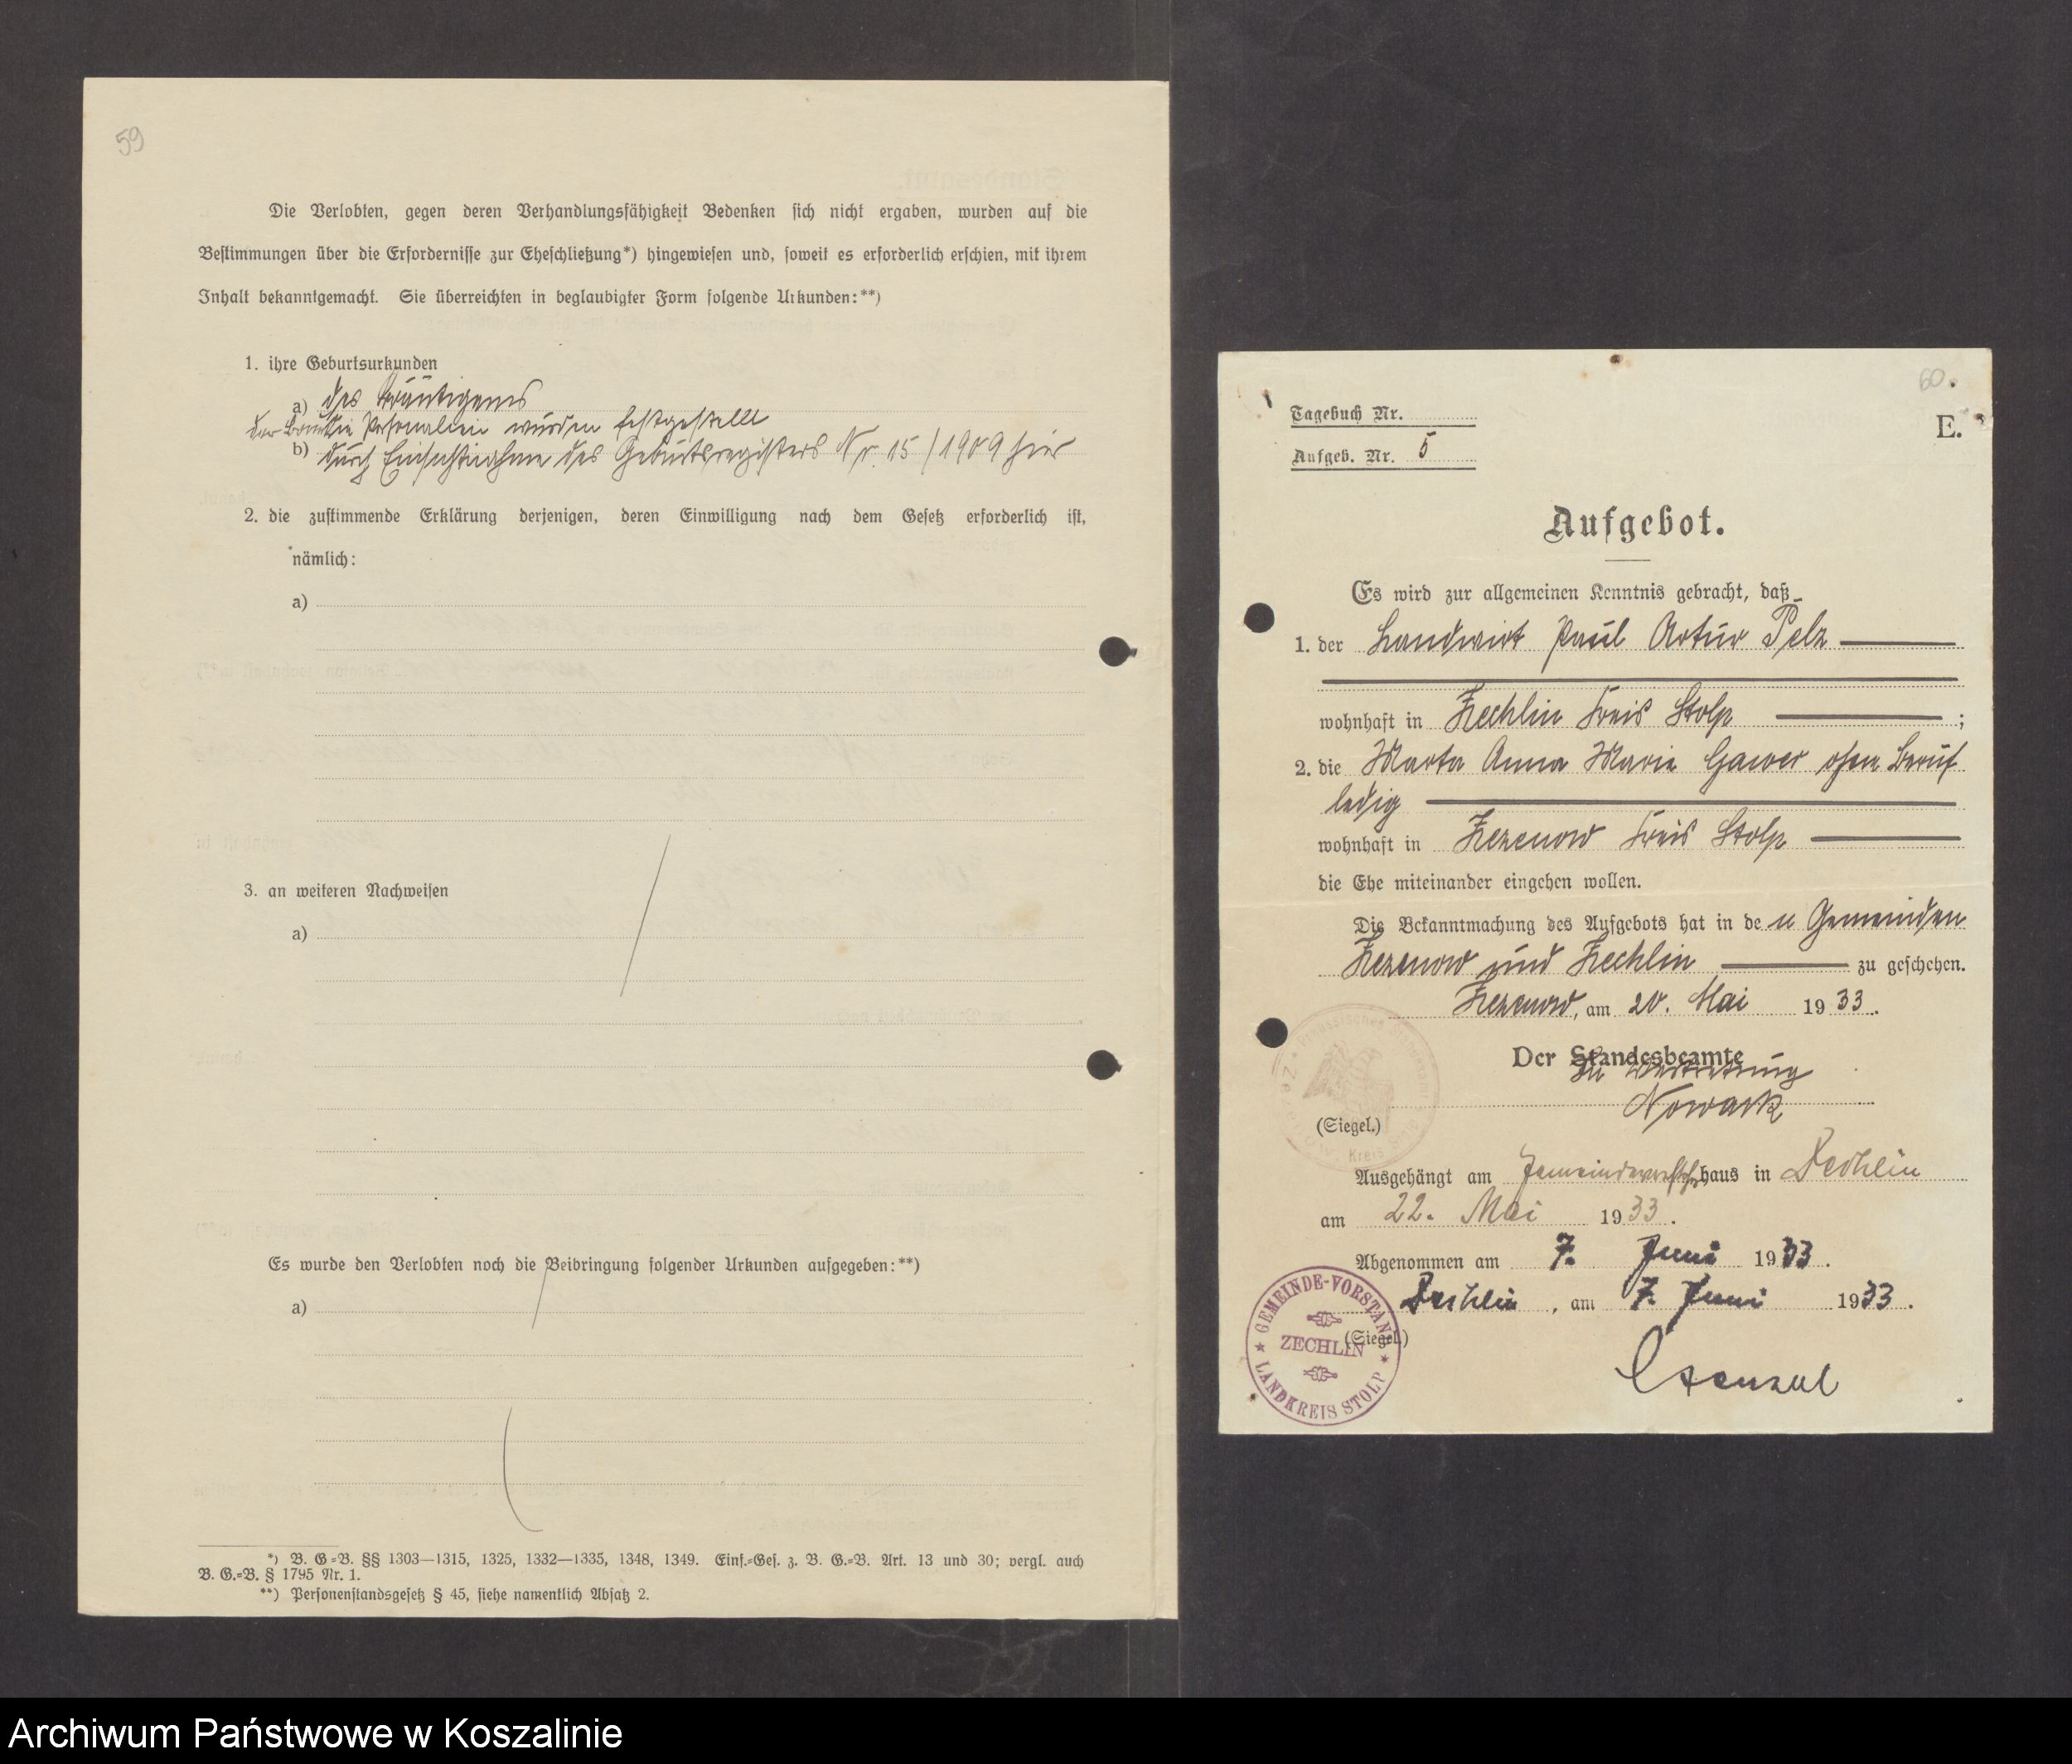 59
Die Verlobten, gegen deren Verhandlungsfähigkeit Bedenken sich nicht ergaben, wurden auf die
Bestimmungen über die Erfordernisse zur Eheschließung*) hingewiesen und, soweit es erforderlich erschien, mit ihrem
Inhalt bekanntgemacht. Sie überreichten in beglaubigter Form folgende Urkunden:**)
1. ihre Geburtsurkunden
a) des Bräutigams
der Braut die Personalien wurden festgestellt
b) durch Einsichtnahme des Geburtsregisters Nr. 15/1909 hier
2. die zustimmende Erklärung derjenigen, deren Einwilligung nach dem Gesetz erforderlich ist,
nämlich:
a)
3. an weiteren Nachweisen
a)
Es wurde den Verlobten noch die Beibringung folgender Urkunden aufgegeben:**)
a)
*) B. G.=B. §§ 1303—1315, 1325, 1332—1335, 1348, 1349. Einf.=Ges. z. B. G.=B. Art. 13 und 30; vergl. auch
B. G.=B. § 1795 Nr. 1.
**) Personenstandsgesetz § 45, siehe namentlich Absatz 2.
60.
Tagebuch Nr.
E.
Aufgeb. Nr. 5
Aufgebot.
Es wird zur allgemeinen Kenntnis gebracht, daß
1. der Landwirt Paul Artur Pelz
wohnhaft in Zechlin Kreis Stolp ;
2. die Marta Anna Marie Gawer ohne Beruf
ledig
wohnhaft in Zezenow Kreis Stolp
die Ehe miteinander eingehen wollen.
Die Bekanntmachung des Aufgebots hat in den Gemeinden
Zezenow und Zechlin zu geschehen.
Zezenow, am 20. Mai 1933.
Der Standesbeamte
In Vertretung
Nowack
(Siegel.)
Kreis
Ausgehängt am haus in Zechlin
am 22. Mai 1933.
Abgenommen am 7. Juni 1933.
Zechlin, am 7. Juni 1933.
(Siegel.)
GEMEINDE-VORSTAND
ZECHLIN
LANDKREIS STOLP
Stenzel
Archiwum Państwowe w Koszalinie